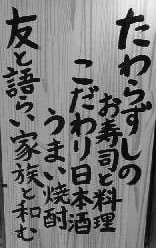 たわらずしの
お寿司と料理
こだわり日本酒
うまい焼酎
友と語らい、家族と和む